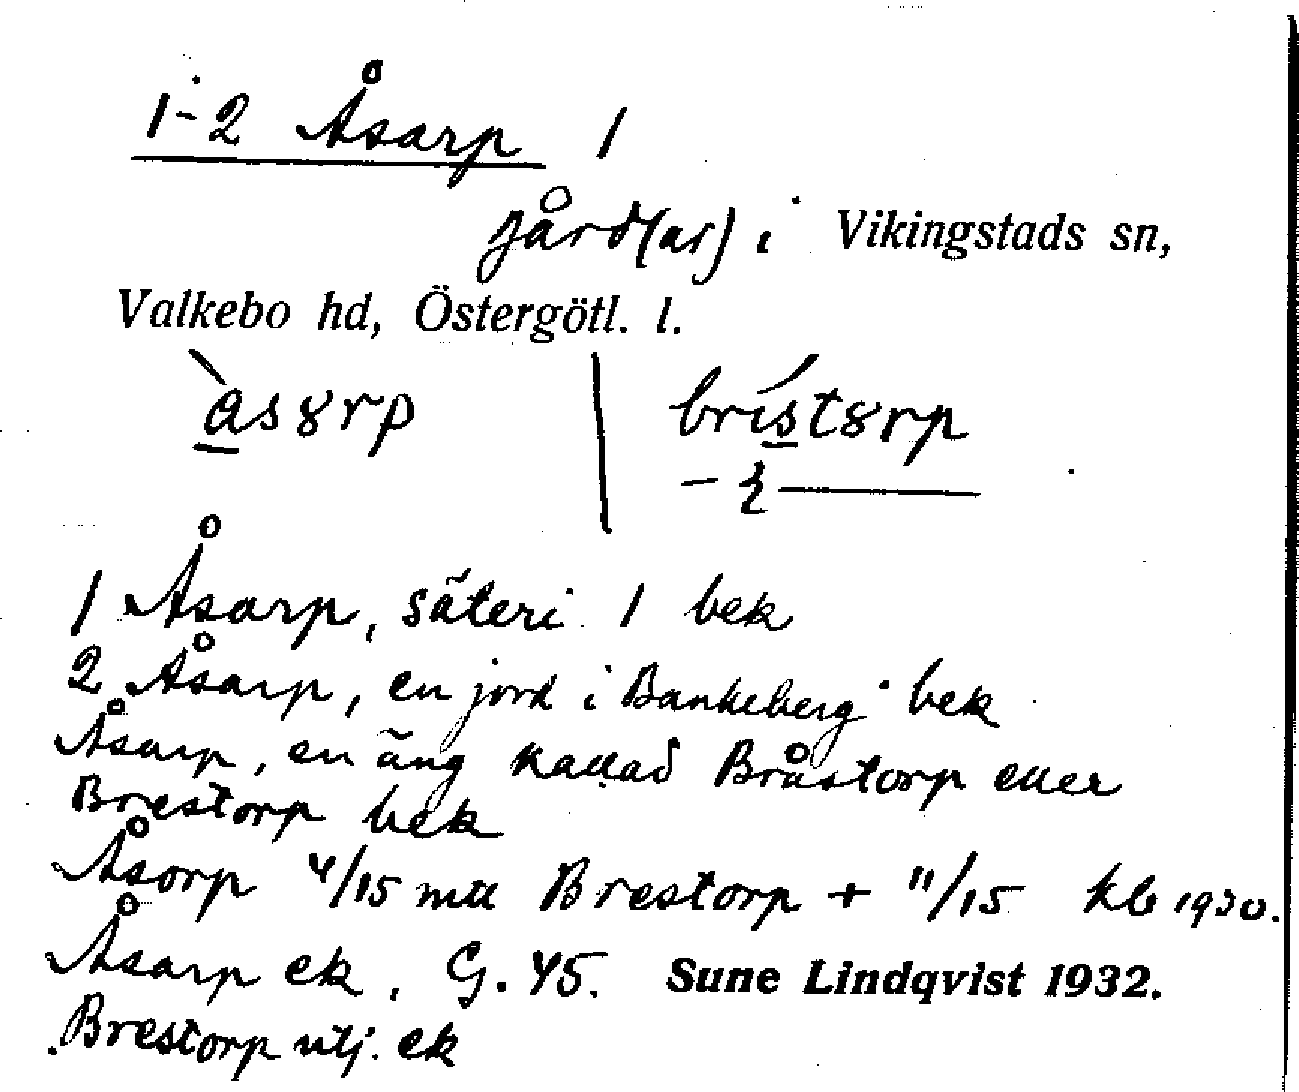 1-2 Åsarp 1
gård(ar) i Vikingstads sn,
Valkebo hd, Östergötl. l.
åsȣrp | brístȣrp
1 Åsarp, säteri 1 bek
2 Åsarp, en jord i Bankeberg bek
Åsarp, en äng kallad Bråstorp eller
Brestorp bek
Åsorp 4/15 mtl Brestorp + 11/15 kb 1930.
Åsarp ek, G. 45. Sune Lindqvist 1932.
Brestorp utj. ek